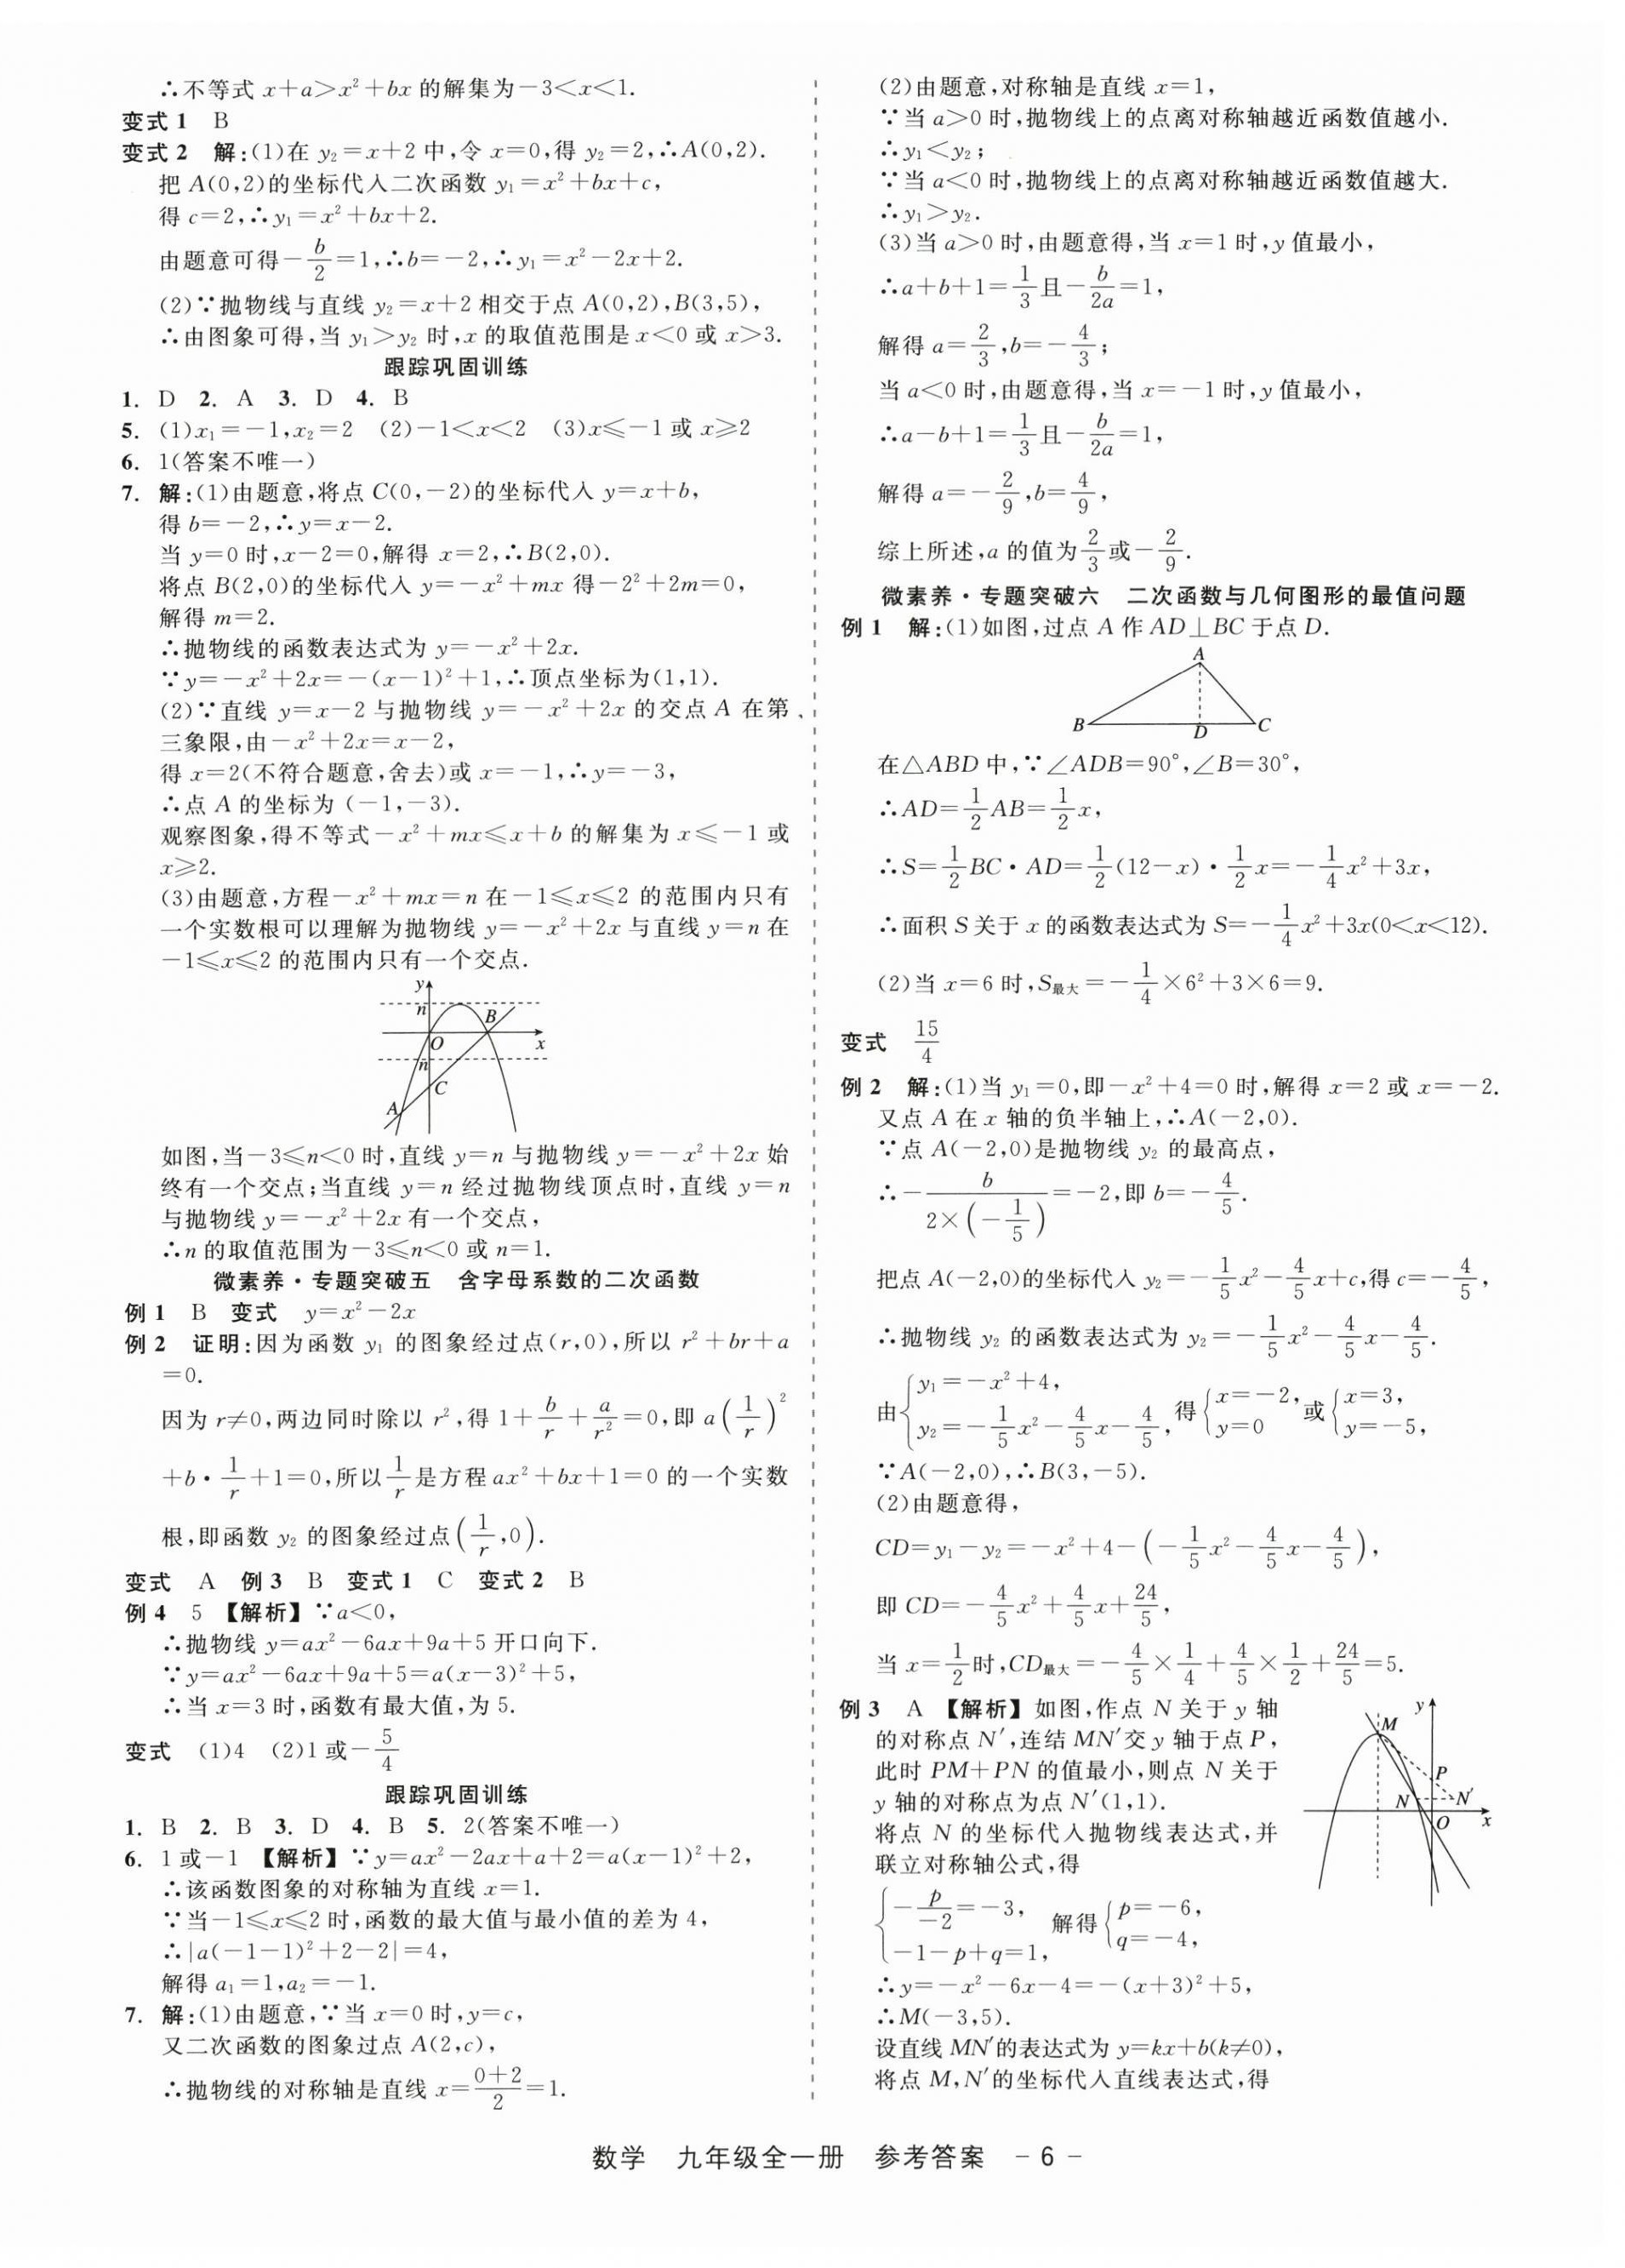 ∴不等式 x+a>x²+bx 的解集为-3<x<1.
变式1 B
变式2 解:(1)在 y₂=x+2 中,令 x=0,得 y₂=2,∴A(0,2).
把 A(0,2)的坐标代入二次函数 y₁=x²+bx+c,
得 c=2,∴y₁=x²+bx+2.
由题意可得-b/2=1,∴b=-2,∴y₁=x²-2x+2.
(2)∵抛物线与直线 y₂=x+2 相交于点 A(0,2),B(3,5),
∴由图象可得,当 y₁>y₂ 时,x 的取值范围是 x<0 或 x>3.
跟踪巩固训练
1. D 2. A 3. D 4. B
5. (1)x₁=-1,x₂=2 (2)-1<x<2 (3)x≤-1 或 x≥2
6. 1(答案不唯一)
7. 解:(1)由题意,将点 C(0,-2)的坐标代入 y=x+b,
得 b=-2,∴y=x-2.
当 y=0 时,x-2=0,解得 x=2,∴B(2,0).
将点 B(2,0)的坐标代入 y=-x²+mx 得-2²+2m=0,
解得 m=2.
∴抛物线的函数表达式为 y=-x²+2x.
∵y=-x²+2x=-(x-1)²+1,∴顶点坐标为(1,1).
(2)∵直线 y=x-2 与抛物线 y=-x²+2x 的交点 A 在第
三象限,由-x²+2x=x-2,
得 x=2(不符合题意,舍去)或 x=-1,∴y=-3,
∴点 A 的坐标为 (-1,-3).
观察图象,得不等式-x²+mx≤x+b 的解集为 x≤-1 或
x≥2.
(3)由题意,方程-x²+mx=n 在-1≤x≤2 的范围内只有
一个实数根可以理解为抛物线 y=-x²+2x 与直线 y=n 在
-1≤x≤2 的范围内只有一个交点.
y
n
B
O
x
n
C
A
如图,当-3≤n<0 时,直线 y=n 与抛物线 y=-x²+2x 始
终有一个交点;当直线 y=n 经过抛物线顶点时,直线 y=n
与抛物线 y=-x²+2x 有一个交点,
∴n 的取值范围为-3≤n<0 或 n=1.
微素养·专题突破五 含字母系数的二次函数
例1 B 变式 y=x²-2x
例2 证明:因为函数 y₁ 的图象经过点(r,0),所以 r²+br+a
=0.
因为 r≠0,两边同时除以 r²,得 1+b/r+a/r²=0,即 a(1/r)²
+b·1/r+1=0,所以1/r是方程 ax²+bx+1=0 的一个实数
根,即函数 y₂ 的图象经过点(1/r,0).
变式 A 例3 B 变式1 C 变式2 B
例4 5 【解析】∵a<0,
∴抛物线 y=ax²-6ax+9a+5 开口向下.
∵y=ax²-6ax+9a+5=a(x-3)²+5,
∴当 x=3 时,函数有最大值,为 5.
变式 (1)4 (2)1 或-5/4
跟踪巩固训练
1. B 2. B 3. D 4. B 5. 2(答案不唯一)
6. 1 或-1 【解析】∵y=ax²-2ax+a+2=a(x-1)²+2,
∴该函数图象的对称轴为直线 x=1.
∵当-1≤x≤2 时,函数的最大值与最小值的差为 4,
∴|a(-1-1)²+2-2|=4,
解得 a₁=1,a₂=-1.
7. 解:(1)由题意,∵当 x=0 时,y=c,
又二次函数的图象过点 A(2,c),
∴抛物线的对称轴是直线 x=(0+2)/2=1.
(2)由题意,对称轴是直线 x=1,
∵当 a>0 时,抛物线上的点离对称轴越近函数值越小.
∴y₁<y₂;
∵当 a<0 时,抛物线上的点离对称轴越近函数值越大.
∴y₁>y₂.
(3)当 a>0 时,由题意得,当 x=1 时,y 值最小,
∴a+b+1=1/3且-b/2a=1,
解得 a=2/3,b=-4/3;
当 a<0 时,由题意得,当 x=-1 时,y 值最小,
∴a-b+1=1/3且-b/2a=1,
解得 a=-2/9,b=4/9,
综上所述,a 的值为2/3或-2/9.
微素养·专题突破六 二次函数与几何图形的最值问题
例1 解:(1)如图,过点 A 作 AD⊥BC 于点 D.
A
B D C
在△ABD 中,∵∠ADB=90°,∠B=30°,
∴AD=1/2AB=1/2x,
∴S=1/2BC·AD=1/2(12-x)·1/2x=-1/4x²+3x,
∴面积 S 关于 x 的函数表达式为 S=-1/4x²+3x(0<x<12).
(2)当 x=6 时,S最大=-1/4×6²+3×6=9.
变式 15/4
例2 解:(1)当 y₁=0,即-x²+4=0 时,解得 x=2 或 x=-2.
又点 A 在 x 轴的负半轴上,∴A(-2,0).
∵点 A(-2,0)是抛物线 y₂ 的最高点,
∴-b/(2×(-1/5))=-2,即 b=-4/5.
把点 A(-2,0)的坐标代入 y₂=-1/5x²-4/5x+c,得 c=-4/5,
∴抛物线 y₂ 的函数表达式为 y₂=-1/5x²-4/5x-4/5.
由{y₁=-x²+4, y₂=-1/5x²-4/5x-4/5, 得{x=-2, y=0 或{x=3, y=-5,
∵A(-2,0),∴B(3,-5).
(2)由题意得,
CD=y₁-y₂=-x²+4-(-1/5x²-4/5x-4/5),
即 CD=-4/5x²+4/5x+24/5,
当 x=1/2时,CD最大=-4/5×1/4+4/5×1/2+24/5=5.
例3 A 【解析】如图,作点 N 关于 y 轴
的对称点 N′,连结 MN′交 y 轴于点 P,
此时 PM+PN 的值最小,则点 N 关于
y 轴的对称点为点 N′(1,1).
将点 N 的坐标代入抛物线表达式,并
联立对称轴公式,得
{-p/-2=-3, -1-p+q=1, 解得{p=-6, q=-4,
∴y=-x²-6x-4=-(x+3)²+5,
∴M(-3,5).
设直线 MN′的表达式为 y=kx+b(k≠0),
将点 M,N′的坐标代入直线表达式,得
y
M
P
N N′
O x
数学 九年级全一册 参考答案 - 6 -